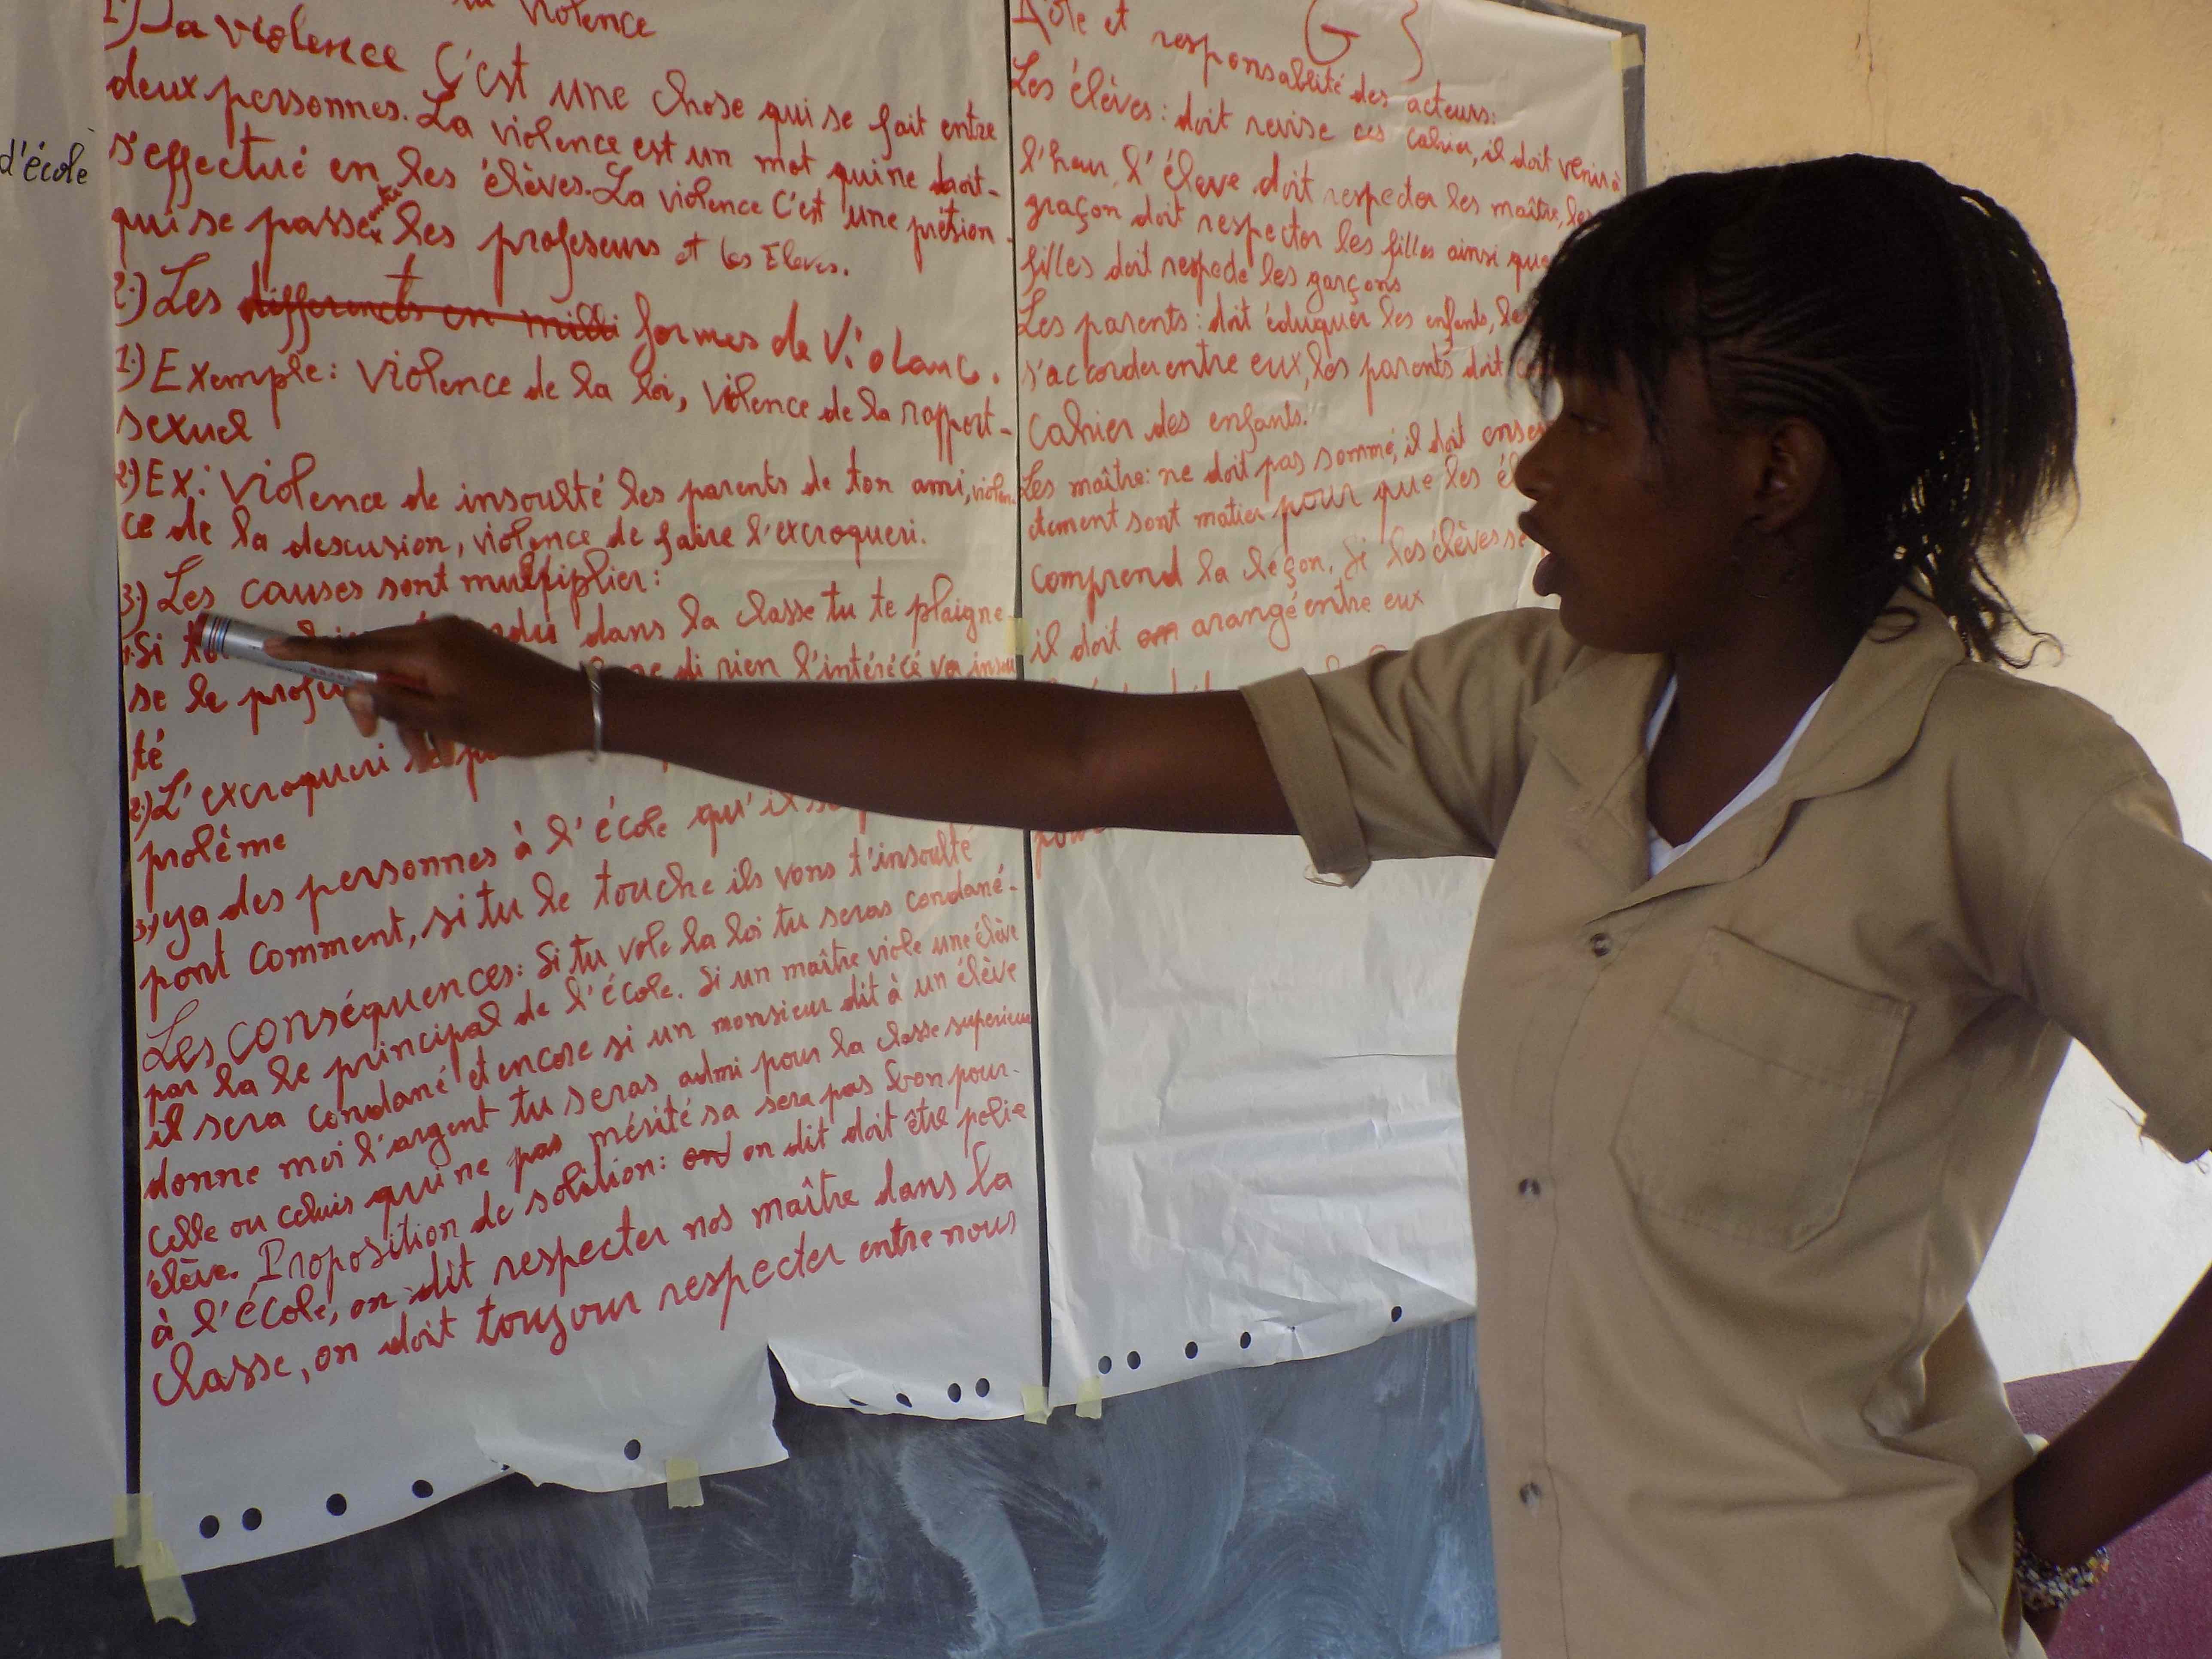 d'école
la violence
1°) La violence C'est une chose qui se fait entre
deux personnes. La violence est un mot qui ne doit-
s'effectué en les élèves. La violence C'est une présion
qui se passe entre les profeseurs et les Eleves.
2°) Les differents en milli formes de Violanc.
1°) Exemple: Violence de la loi, Violence de la rapport-
sexuel
2°) Ex: Violence de insoulté les parents de ton ami, violen-
ce de la descusion, violence de faire l'excroqueri.
3°) Les causes sont multiplier:
Si dans la classe tu te plaigne
di rien l'intérécé va insou
se le
té
2°) L'excroqueri
prolème
3°) ya des personnes à l'école
pont comment, si tu le touche ils vons t'insoulté
Les conséquences: Si tu vole la loi tu seras condané-
par la le principal de l'école. Si un maître viole une élève
il sera condané et encore si un monsieur dit à un élève
donne moi l'argent tu seras admi pour la classe superieur
celle ou celuis qui ne pas mérité sa sera pas bon pour-
élève. Proposition de solition: on on dit doit être polie
à l'école, on dit respecter nos maître dans la
classe, on doit toujour respecter entre nous
G3
Rôle et responsablité des acteurs:
Les élèves: doit revise ces cahier, il doit venir à
l'heur, l'éleve doit respecter les maître, les
graçon doit respecter les filles ainsi que
filles doit respede les garçons
Les parents: doit éduquer les enfants,
s'accorder entre eux, les parents doit
Cahier des enfants.
Les maître: ne doit pas sommé, il doit
ctement sont matier pour que les
comprend la leçon. Si les élèves se
il doit arangé entre eux